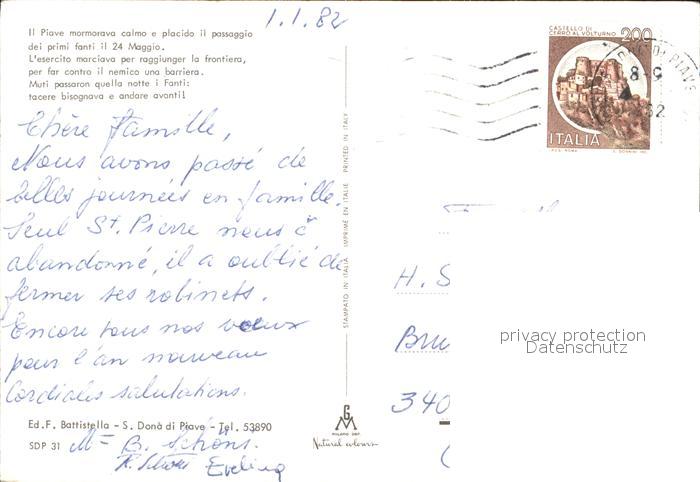 Il Piave mormorava calmo e placido il passaggio
dei primi fanti il 24 Maggio.
L'esercito marciava per raggiunger la frontiera,
per far contro il nemico una barriera.
Muti passaron quella notte i Fanti:
tacere bisognava e andare avanti!
1.1.82
Chère famille,
Nous avons passé de
belles journées en famille.
Seul St. Pierre nous à
abandonné, il a oublié de
fermer ses robinets.
Encore tous nos voeux
pour l'an nouveau
Cordiales salutations.
Ed. F. Battistella - S. Donà di Piave - Tel. 53890
SDP 31
B. Schöns.
Eveline
STAMPATO IN ITALIA IMPRIMÉ EN ITALIE PRINTED IN ITALY
GM
MILANO DEP.
Natural colours
CASTELLO DI
CERRO AL VOLTURNO
200
ITALIA
DI PIAVE
8-9
82
H. S
Bru
340
privacy protection
Datenschutz